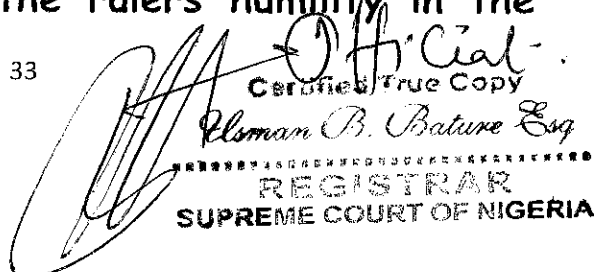 the rulers humility in the
33
Official.
Certified True Copy
Usman B. Bature Esq
REGISTRAR
SUPREME COURT OF NIGERIA